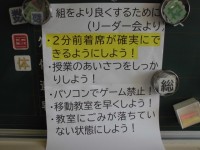 組をより良くするために
（リーダー会より
・2分前着席が確実にで
きるようにしよう！
・授業のあいさつをしっか
りしよう！
・パソコンでゲーム禁止！
・移動教室を早くしよう！
・教室にごみが落ちてい
ない状態にしよう！
総
休